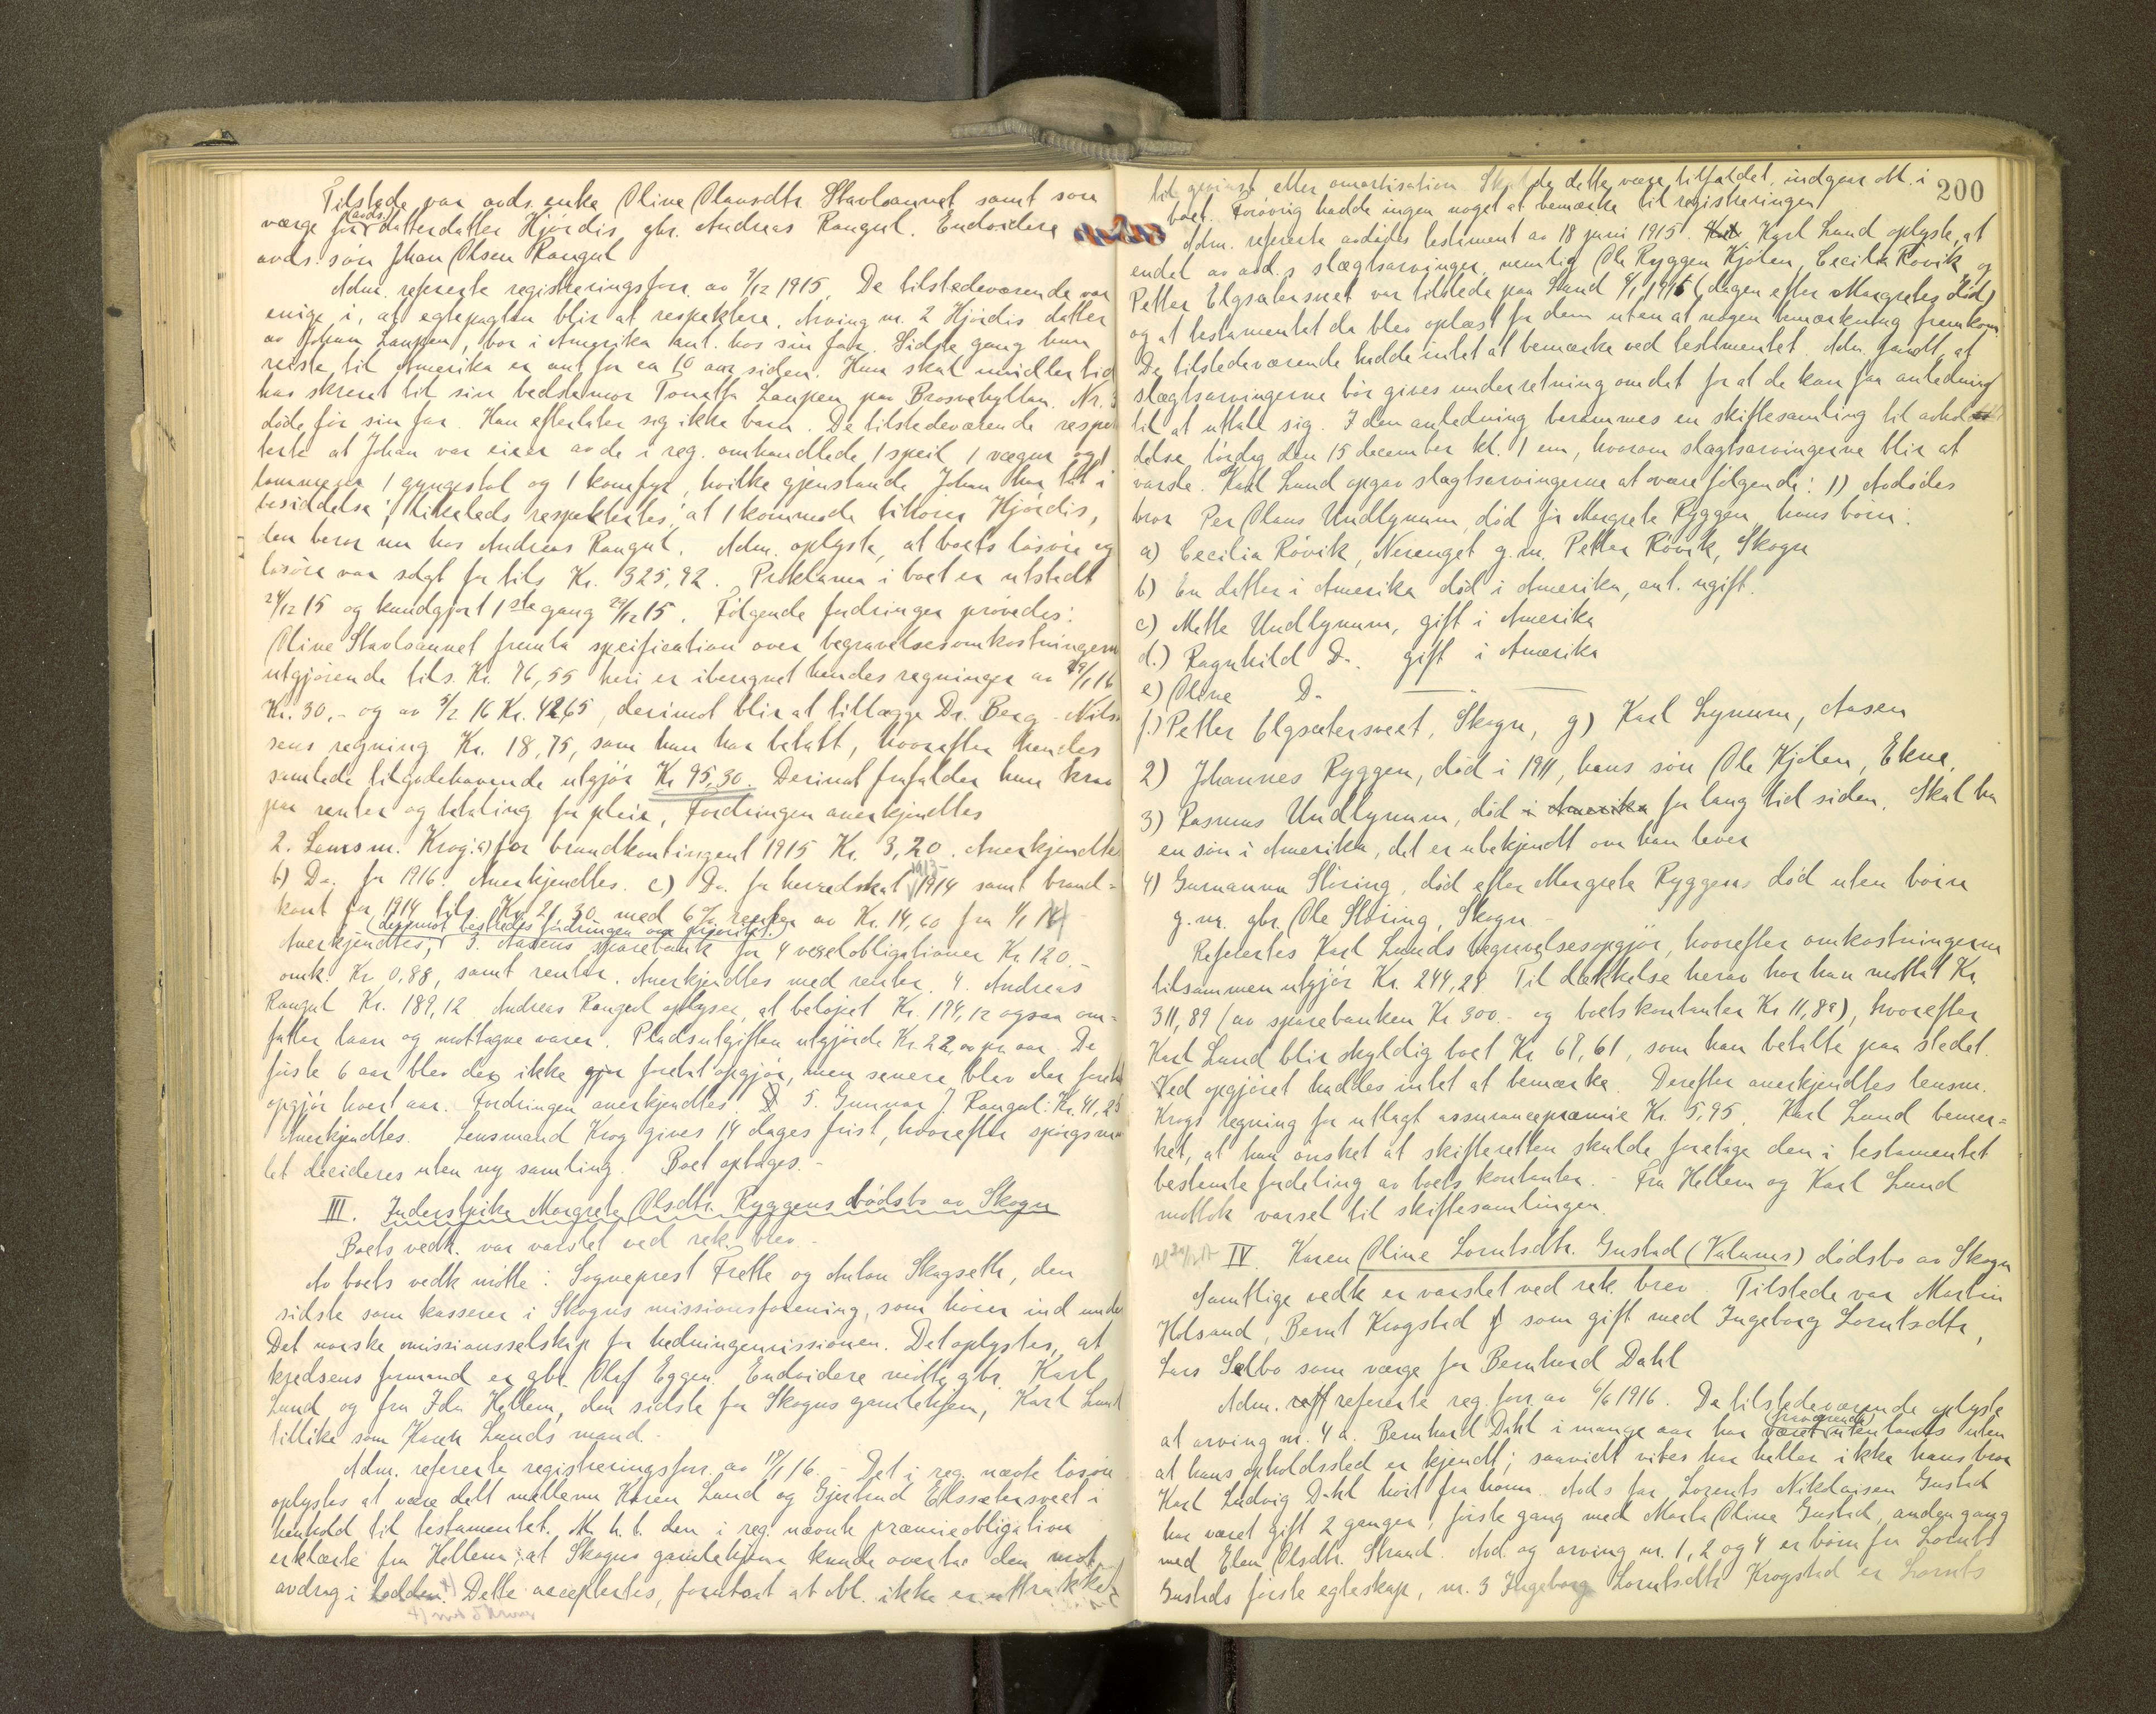 Tilstede var avds. enke Oline Olausdtr. Stavloannet samt som
værge for avds. datterdatter Hjördis, gbr. Andreas Rangul. Endvidere
avds. sön Johan Olsen Rangul
Adm. refererte registreringsforr. av 7/12 1915. De tilstedeværende var
enige i, at egtepagten blir at respektere. Arving nr. 2 Hjördis datter
av Johan Laupen, bor i Amerika ant. hos sin far. Sidste gang hun
reiste til Amerika er ant. for ca 10 aar siden. Hun skal imidlertid
ha skrevet til sin bedstemor Tonetta Laupen paa Brosvehyllan. Nr. 3
döde för sin far. Han efterlater sig ikke barn. De tilstedeværende respek
terte at Johan var eier av de i reg. omhandlede 1 speil, 1 vægur og 1
lommeur 1 gyngestol og 1 komfyr, hvilke gjenstande Johan har tat i
besiddelse; likeleds respektertes, at 1 kommode tilhörer Hjördis,
den beror nu hos Andreas Rangul. Adm. oplyste, at boets lösöre og
lösöre var solgt for tils. Kr. 325,92. Proklama i boet er utstedt
24/12 15 og kundgjort 1ste gang 29/12 15. Følgende fordringer prövedes:
Oline Stavloannet fremla specification over begravelsesomkostningerne
utgjörende tils. Kr. 76,55 heri er iberegnet hendes regninger av 29/1 16
Kr. 30,- og av 5/2 16 Kr. 42,65, derimot blir at tillægge Dr. Berg-Nils-
sens regning Kr. 18,75, som hun har betalt, hvorefter hendes
samlede tilgodehavende utgjör Kr 95,30. Derimot frafalder hun krav
paa renter og betaling for pleie. Fordringen anerkjendtes
2. Lensm. Krog: a) for brandkontingent 1915 Kr. 3,20. Anerkjendtes
b) Do. for 1916. Anerkjendtes. c) Do. for herredskat 1913-1914 samt brand-
kont. for 1914 tils. Kr. 21,30 med 6% renter av Kr. 14,60 fra 1/1 14
Anerkjendtes, (derimot bestredes fordringen om prioritet.) 3. Aasens sparebank for 4 vexelobligationer Kr 120.-
omk. Kr. 0,88, samt renter. Anerkjendtes med renter. 4. Andreas
Rangul Kr. 189,12. Andreas Rangul oplyser, at belöpet Kr. 174,12 ogsaa om-
fatter laan og mottagne varer. Pladsutgiften utgjorde Kr. 22,00 pr. aar. De
förste 6 aar blev der ikke gjor foretat opgjör, men senere blev der foretat
opgjör hvert aar. Fordringen anerkjendtes. 5. Gunnar J. Rangul: Kr. 41,25
Anerkjendtes. Lensmand Krog gives 14 dages frist, hvorefter spörgsmaa
let decideres uten ny samling. Boet optages.-
III. Inderstpike Margrete Olsdtr. Ryggens dödsbo av Skogn
Boets vedk. var varslet ved rek. brev.-
Av boets vedk mötte: Sogneprest Frette og Anton Skogseth, den
sidste som kasserer i Skogns missionsforening, som hörer ind under
Det norske missionsselskap for hedningemissionen. Det oplystes, at
kredsens formand er gbr. Olaf Eggen. Endvidere mötte gbr. Karl
Lund og fru Ida Hellem, den sidste for Skogns gamlehjem, Karl Lund
tillike som Karen Lunds mand.-
Adm. refererte registreringsforr. av 18/1 16.- Det i reg. nævnte lösöre
oplystes at være delt mellem Karen Lund og Gjertrud Elgsætersveet i
henhold til testamentet. M. h. t. den i reg. nævnte præmieobligation
erklærte fru Hellem, at Skogns gamlehjem kunde overta den mot
avdrag i lodden. Dette acceptertes, forutsat at obl. ikke er uttrukket
200
til gevinst eller amortisation. Skulde dette være tilfældet, indgaar obl. i
boet. Forövrig hadde ingen noget at bemærke til registreringen.
Adm. refererte avdödes testament av 18 juni 1915. Karl Lund oplyste, at
endel av avd.s slægtsarvinger, nemlig Ole Ryggen Kjölen, Cecilie Rövik og
Petter Elgsætersveet var tilstede paa Lund 8/1 1916 (dagen efter Margretes död)
og at testamentet da blev oplæst for dem uten at nogen bemærkning fremkom.
De tilstedeværende hadde intet at bemærke ved testamentet. Adm. fandt, at
slægtsarvingerne bör gives underretning om det for at de kan faa anledning
til at uttale sig. I den anledning berammes en skiftesamling til avhol
delse lördag den 15 december kl. 1 em, hvorom slægtsarvingerne blir at
varsle. Karl Lund opgav slægtsarvingerne at være følgende: 1) Avdödes
bror Per Olaus Undlynum, död för Margrete Ryggen, hans börn:
a) Cecilia Rövik, Nesenget g.m. Petter Rövik, Skogn
b) En datter i Amerika död i Amerika, ant. ugift.
c) Mette Undlynum, gift i Amerika
d.) Ragnhild Do. gift i Amerika
e) Oline Do. —"—
f.) Petter Elgsætersveet, Skogn, g) Karl Lynum, Aasen
2) Johannes Ryggen, död i 1911, hans sön Ole Kjölen, Ekne,
3) Rasmus Undlynum, död i Amerika for lang tid siden. Skal ha
en sön i Amerika, det er ubekjendt om han lever
4) Gurianna Störing, död efter Margrete Ryggens död uten börn
g.m. gbr. Ole Störing, Skogn -
Refertes Karl Lunds begravelsesopgjör, hvorefter omkostningerne
tilsammen utgjör Kr. 244,28. Til dækkelse herav har han mottat Kr.
311,89 (av sparebanken Kr 300.- og boets kontanter Kr 11,89), hvorefter
Karl Lund blir skyldig boet Kr 67,61, som han betalte paa stedet.
Ved opgjöret haddes intet at bemærke. Derefter anerkjendtes lensm.
Krogs regning for utlagt assurancepræmie Kr. 5,95. Karl Lund bemer-
ket, at han önsket at skifteretten skulde foretage den i testamentet
bestemte fordeling av boets kontanter.- Fru Hellem og Karl Lund
mottok varsel til skiftesamlingen.
IV. Karen Oline Lorntsdtr. Gustad (Valanes) dödsbo av Skogn
Samtlige vedk er varslet ved rek. brev. Tilstede var Martin
Holsand, Bernt Krogstad som gift med Ingeborg Lorntsdtr,
Lars Selbo som værge for Bernhard Dahl
Adm. refererte reg. forr. av 6/6 1916. De tilstedeværende oplyste
at arving nr. 4 a. Bernhard Dahl i mange aar har været (fraværende) utenlands uten
at hans opholdssted er kjendt; saavidt vites har heller ikke hans bror
Karl Ludvig Dahl hört fra ham. Avd.s far Lorents Nikolaisen Gustad
har været gift 2 ganger, förste gang med Marta Oline Gustad, anden gang
med Elen Olsdtr. Strand. Avd. og arving nr. 1, 2 og 4 er börn fra Lornts
Gustads förste egteskap, nr. 3 Ingeborg Lorntsdtr Krogstad er Lornts